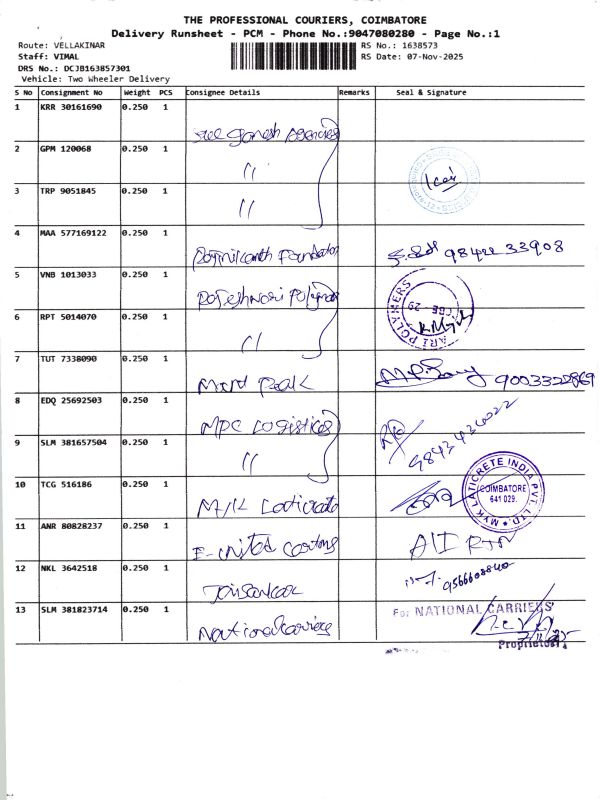 THE PROFESSIONAL COURIERS, COIMBATORE
Delivery Runsheet - PCM - Phone No.:9047080280 - Page No.:1
Route: VELLAKINAR
RS No.: 1638573
Staff: VIMAL
RS Date: 07-Nov-2025
DRS No.: DCJB163857301
Vehicle: Two Wheeler Delivery
S No Consignment No Weight PCS Consignee Details Remarks Seal & Signature
1 KRR 30161690 0.250 1
Sree Ganesh Agencies
2 GPM 120068 0.250 1
"
3 TRP 9051845 0.250 1
"
4 MAA 577169122 0.250 1
98422 33908
5 VNB 1013033 0.250 1
Rajeshwari Polymers
6 RPT 5014070 0.250 1
"
ARI POLYMERS
CBE - 29
7 TUT 7338090 0.250 1
9003322869
8 EDQ 25692503 0.250 1
MPC Logistices
9 SLM 381657504 0.250 1
"
10 TCG 516186 0.250 1
MYK Laticrete
MYK LATICRETE INDIA PVT. LTD.
COIMBATORE
641 029.
11 ANR 80828237 0.250 1
E-United Cartons
12 NKL 3642518 0.250 1
Jaisankar
13 SLM 381823714 0.250 1
National carriers
For NATIONAL CARRIERS'
Proprietor